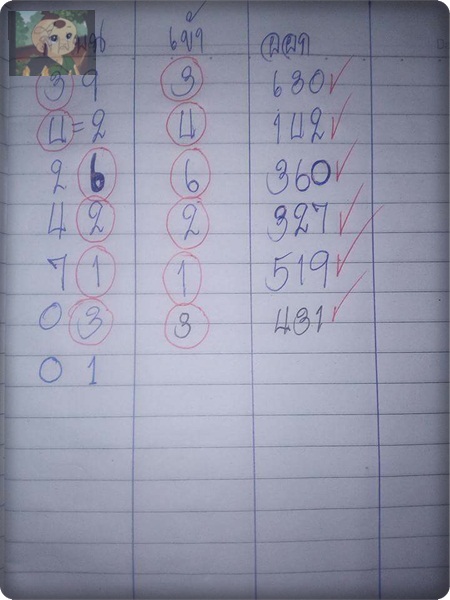 เข้า ออก
3 9 3 630
4 = 2 4 142
2 6 6 360
4 2 2 327
7 1 1 519
0 3 3 431
0 1